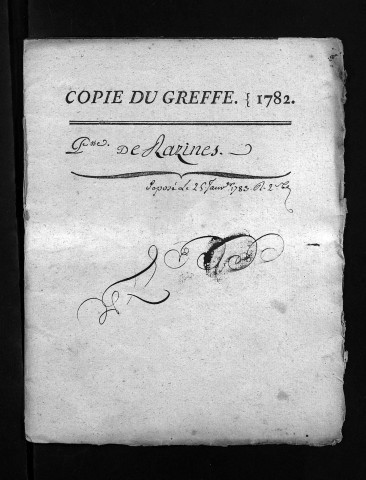 COPIE DU GREFFE. { 1782.
P.sse De Razines.
Déposé Le 25 Janv.er 1783.